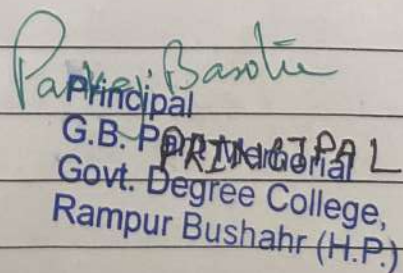 Principal
G.B. Pant Memorial
PRINCIPAL
Govt. Degree College,
Rampur Bushahr (H.P.)